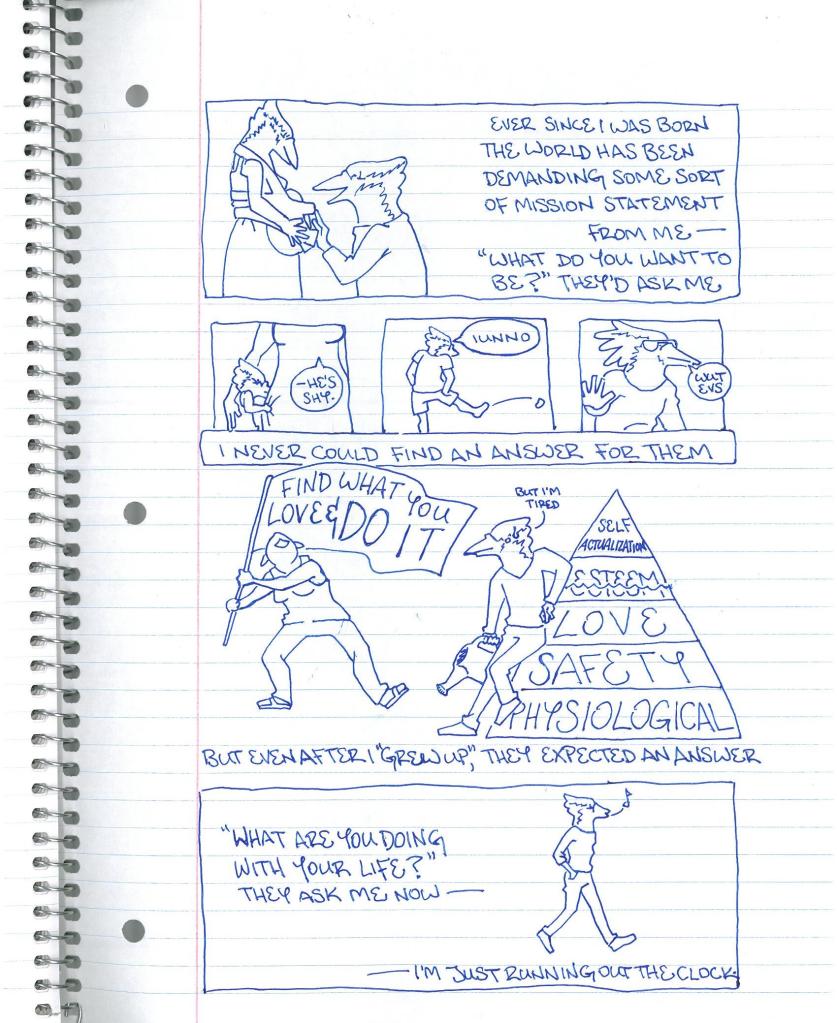 EVER SINCE I WAS BORN
THE WORLD HAS BEEN
DEMANDING SOME SORT
OF MISSION STATEMENT
FROM ME —
"WHAT DO YOU WANT TO
BE?" THEY'D ASK ME
—HE'S
SHY.
IUNNO
WUT
EVS
I NEVER COULD FIND AN ANSWER FOR THEM
FIND WHAT YOU
LOVE & DO IT
BUT I'M
TIRED
SELF
ACTUALIZATION
ESTEEM
LOVE
SAFETY
PHYSIOLOGICAL
BUT EVEN AFTER I "GREW UP," THEY EXPECTED AN ANSWER
"WHAT ARE YOU DOING
WITH YOUR LIFE?"
THEY ASK ME NOW —
— I'M JUST RUNNING OUT THE CLOCK.